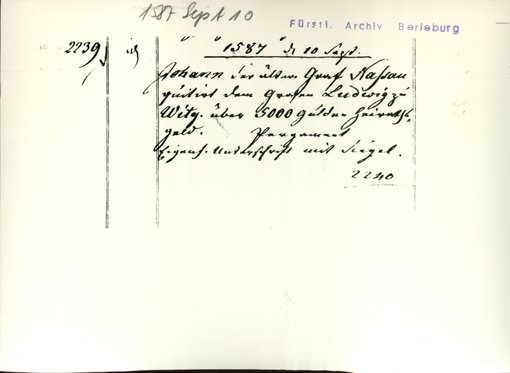 1587 Sept 10
Fürstl. Archiv Berleburg
" " "
2239 1587 d 10 Sept.
Johann der ältere Graf Nassau
quitirt dem Grafen Ludwig zu
Witg. über 5000 Gulden Heiraths-
geld. Pergament
Eigenh. Unterschrift mit Siegel.
2240